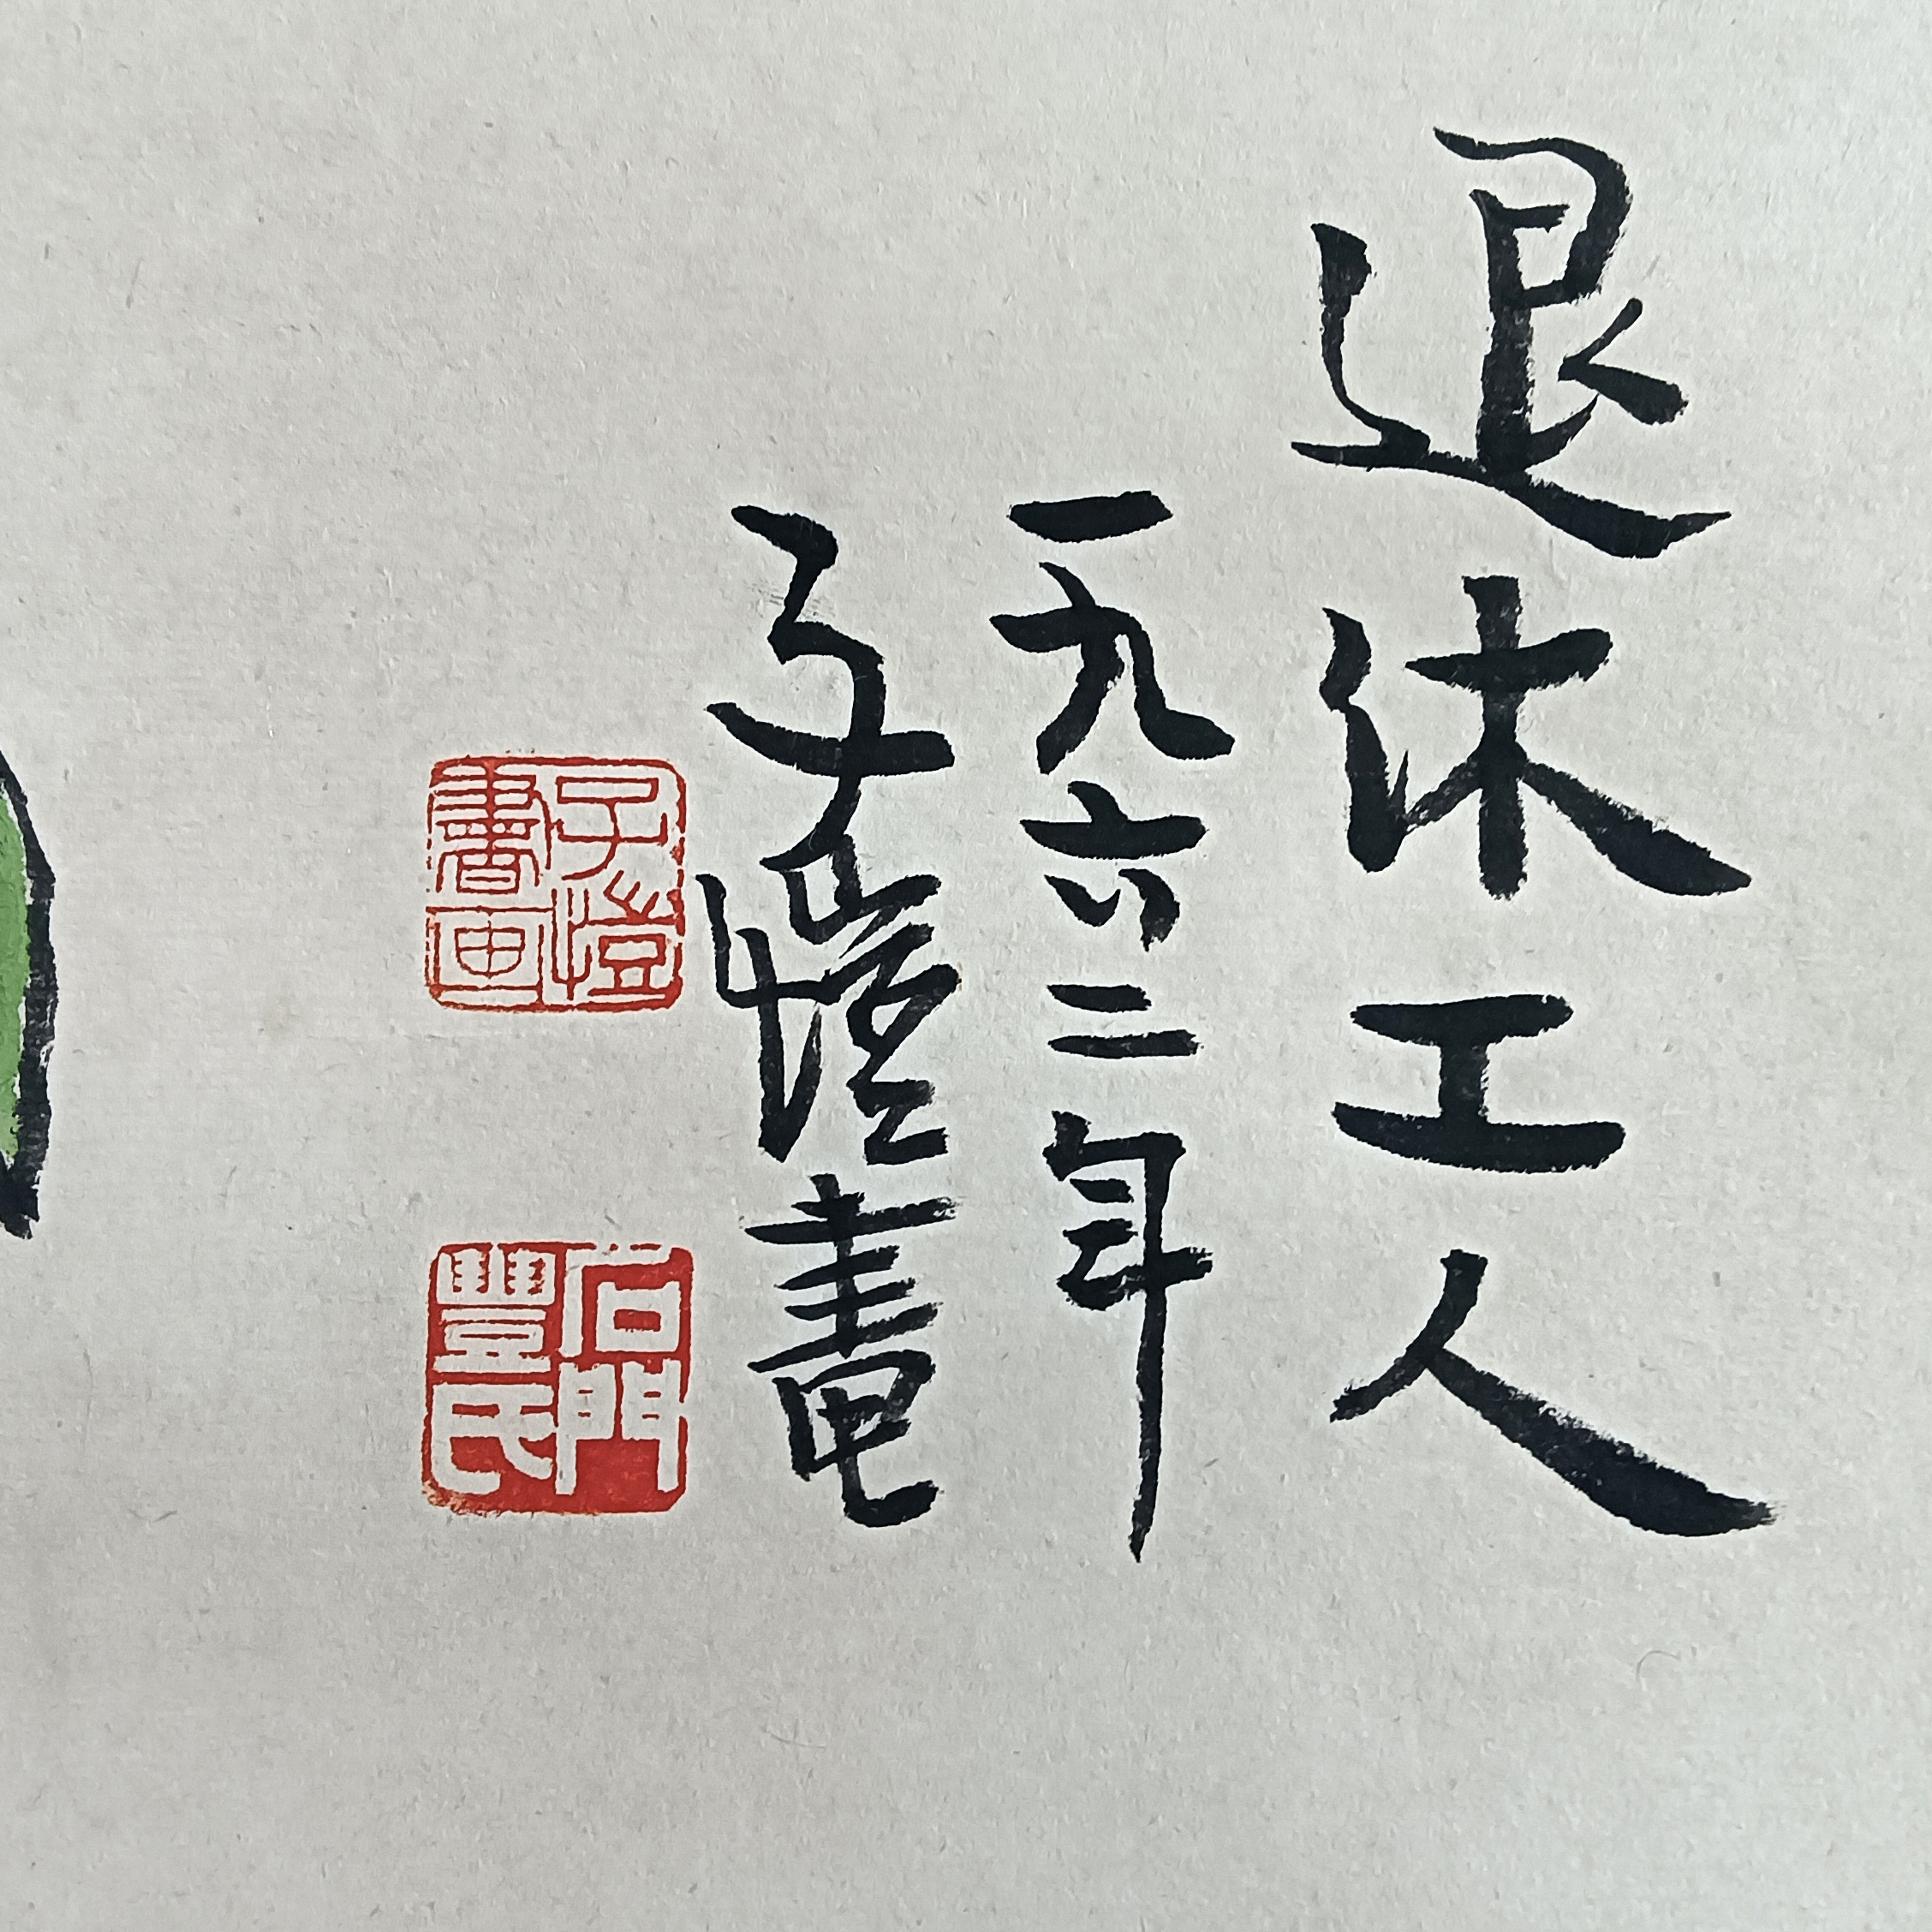 退休工人
一九六二年
子愷畫
子愷書画
石門豐氏